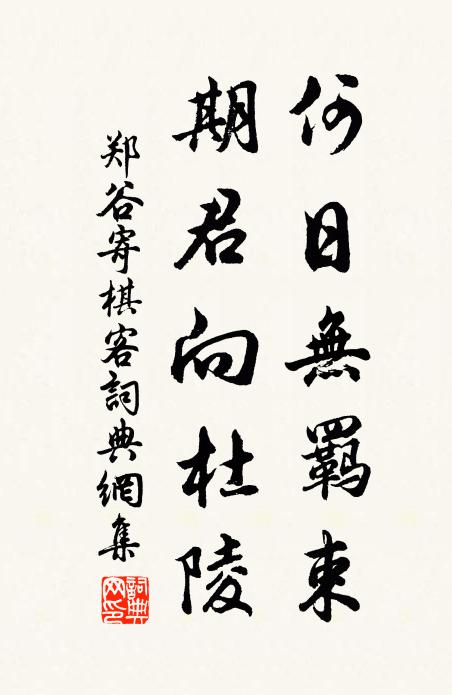 何日無羈束
期君向杜陵
郑谷寄棋客詞典網集
詞典網印